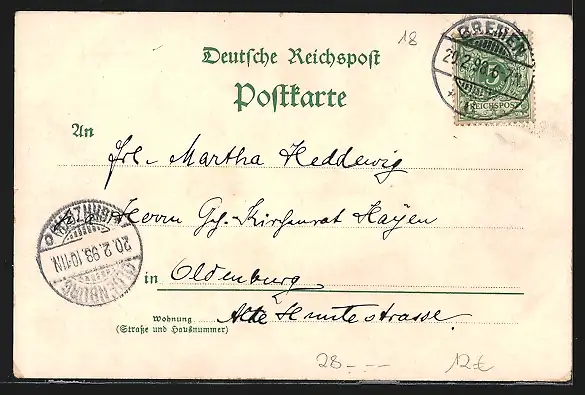 18
BREMEN
20.2.98.6-7N.
REICHSPOST
Deutsche Reichspost
Postkarte
An
Frl. Martha Heddewig
Herrn Geh. Kirchenrat Hayen
20.2.98.10-11N.
OLDENBURG
in Oldenburg
Wohnung
(Straße und Hausnummer)
Alte Huntestrasse.
28.---
12€